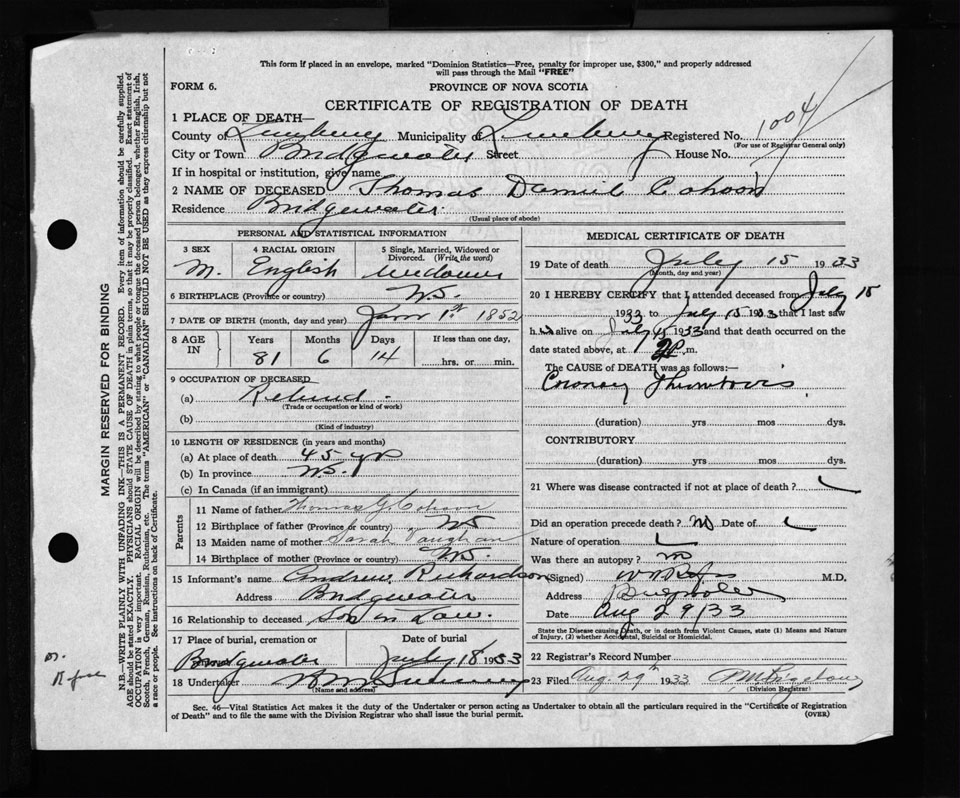 This form if placed in an envelope, marked "Dominion Statistics—Free, penalty for improper use, $300," and properly addressed
will pass through the Mail "FREE"
FORM 6.
PROVINCE OF NOVA SCOTIA
CERTIFICATE OF REGISTRATION OF DEATH
1 PLACE OF DEATH—
County of Lunenburg Municipality of Lunenburg Registered No. 1004
(For use of Registrar General only)
City or Town Bridgewater Street House No.
If in hospital or institution, give name
2 NAME OF DECEASED Thomas Daniel Cohoon
Residence Bridgewater
(Usual place of abode)
PERSONAL AND STATISTICAL INFORMATION
3 SEX
4 RACIAL ORIGIN
5 Single, Married, Widowed or
Divorced. (Write the word)
M. English Widower
6 BIRTHPLACE (Province or country) N.S.
7 DATE OF BIRTH (month, day and year) 1st 1852
8 AGE
IN
Years Months Days If less than one day,
81 6 14 hrs. or min.
9 OCCUPATION OF DECEASED
(a) Retired.
(Trade or occupation or kind of work)
(b)
(Kind of industry)
10 LENGTH OF RESIDENCE (in years and months)
(a) At place of death 45 yrs
(b) In province N.S.
(c) In Canada (if an immigrant)
Parents
11 Name of father Thomas G. Cohoon
12 Birthplace of father (Province or country) N.S
13 Maiden name of mother Sarah Vaughan
14 Birthplace of mother (Province or country) N.S.
15 Informant's name Andrew Richardson
Address Bridgewater
16 Relationship to deceased Son in Law.
17 Place of burial, cremation or Date of burial
Bridgewater July 18 1933
18 Undertaker
(Name and address)
MEDICAL CERTIFICATE OF DEATH
19 Date of death July 15 1933
(Month, day and year)
20 I HEREBY CERTIFY that I attended deceased from July 15
1933 to July 15 1933 that I last saw
h alive on July 15 1933 and that death occurred on the
date stated above, at m.
The CAUSE OF DEATH was as follows:—
Coronary Thrombosis
(duration) yrs mos dys.
CONTRIBUTORY
(duration) yrs mos dys.
21 Where was disease contracted if not at place of death?
Did an operation precede death? No Date of
Nature of operation
Was there an autopsy? no
(Signed) M.D.
Address Bridgewater
Date Aug 29/33
State the Disease causing Death, or in death from Violent Causes, state (1) Means and Nature
of Injury, (2) whether Accidental, Suicidal or Homicidal.
22 Registrar's Record Number
23 Filed Aug. 29th 1933
(Division Registrar)
Sec. 46—Vital Statistics Act makes it duty of the Undertaker or person acting as Undertaker to obtain all the particulars required in the "Certificate of Registration
of Death" and to file the same with the Division Registrar who shall issue the burial permit.
(OVER)
MARGIN RESERVED FOR BINDING
N.B.—WRITE PLAINLY WITH UNFADING INK—THIS IS A PERMANENT RECORD. Every item of information should be carefully supplied.
AGE should be stated EXACTLY. PHYSICIANS should STATE CAUSE OF DEATH in plain terms, so that it may be properly classified. Exact statement of
OCCUPATION is very important. RACIAL ORIGIN will be described by stating to what people or tongue the deceased person belonged, whether English, Irish,
Scotch, French, German, Russian, Ruthenian, etc. The terms "AMERICAN" or "CANADIAN" SHOULD NOT BE USED as they express citizenship but not
a race or people. See instructions on back of Certificate.